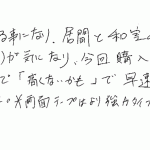 る事になり、居間と和室の
）が気になり、今回 購入
で「高くないかも」で 早速
。両面テープはより強力タイ